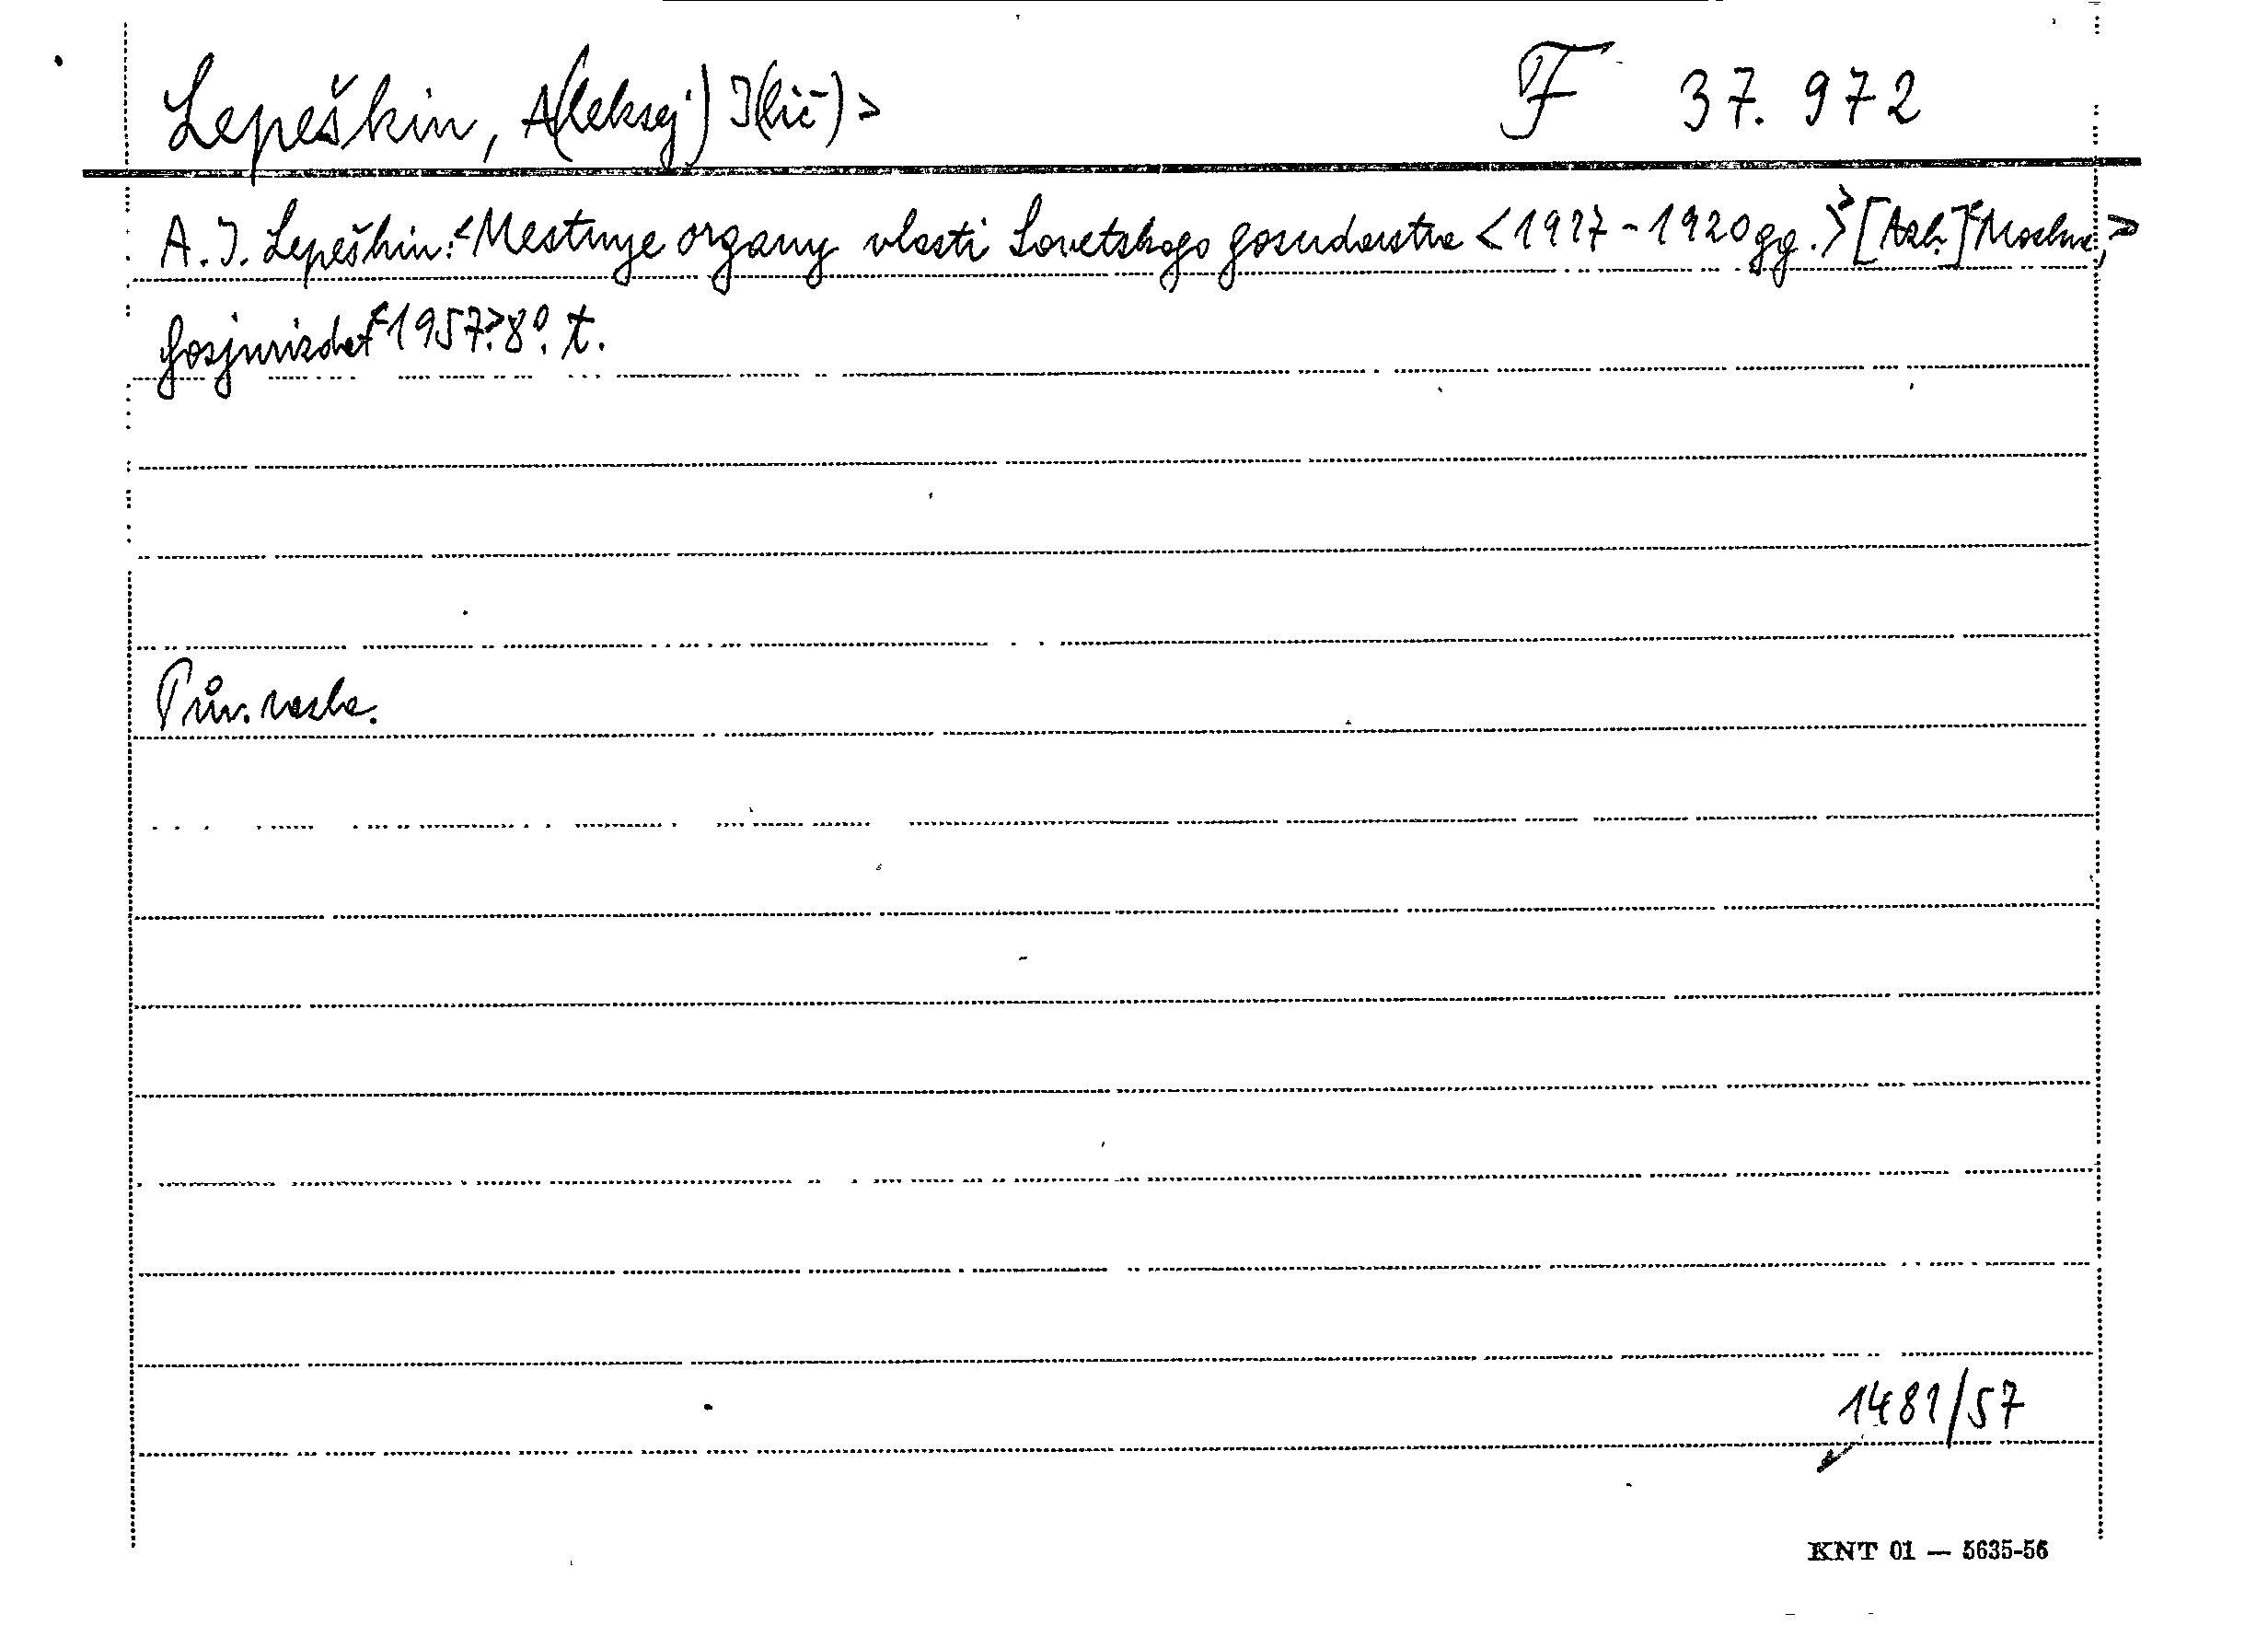 Lepeškin, A(leksej) I(lič) > F 37.972
A. I. Lepeškin: <Mestnye organy vlasti Sovetskogo gosudarstva <1917-1920 gg.>> [Azb.] <Moskva,>
Gosjurizdat <1957.> 8°. t.
Pův. vazba.
1481/57
KNT 01 — 5635-56